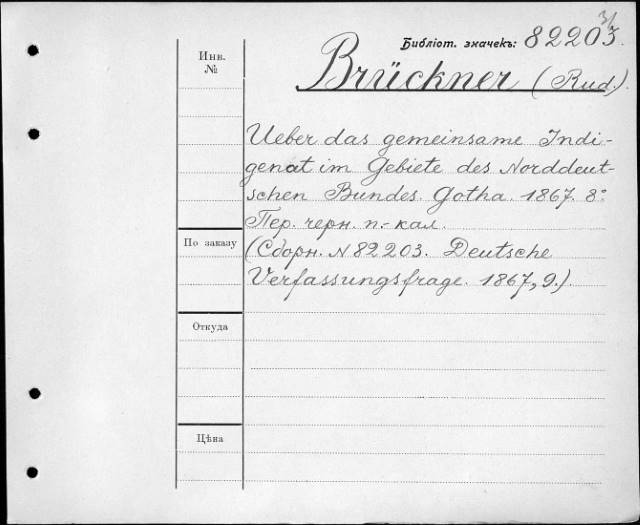 Библіот. значекъ: 82203.
3/
Инв.
№
Brückner (Rud.).
Ueber das gemeinsame Indi-
genat im Gebiete des Norddeut-
schen Bundes. Gotha. 1867. 8°
Пер. черн. п.-кал.
(Сборн. N 82203. Deutsche
Verfassungsfrage. 1867, 9.)
По заказу
Откуда
Цѣна